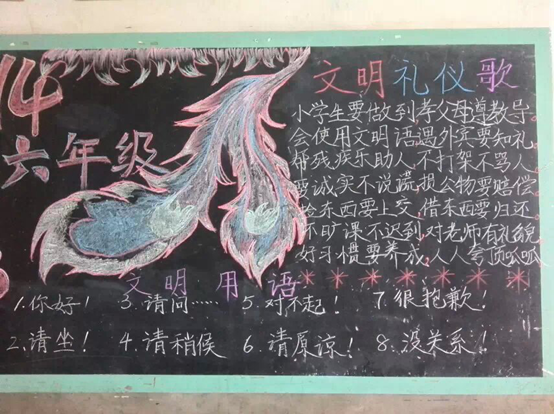 14
六年级
文明礼仪歌
小学生要做到孝父母尊教导
会使用文明语遇外宾要知礼
帮残疾乐助人不打架不骂人
要诚实不说谎损公物要赔偿
捡东西要上交借东西要归还
不旷课不迟到对老师有礼貌
好习惯要养成人人夸顶呱呱
文明用语
1.你好! 3.请问…… 5.对不起! 7.很抱歉!
2.请坐! 4.请稍候 6.请原谅! 8.没关系!